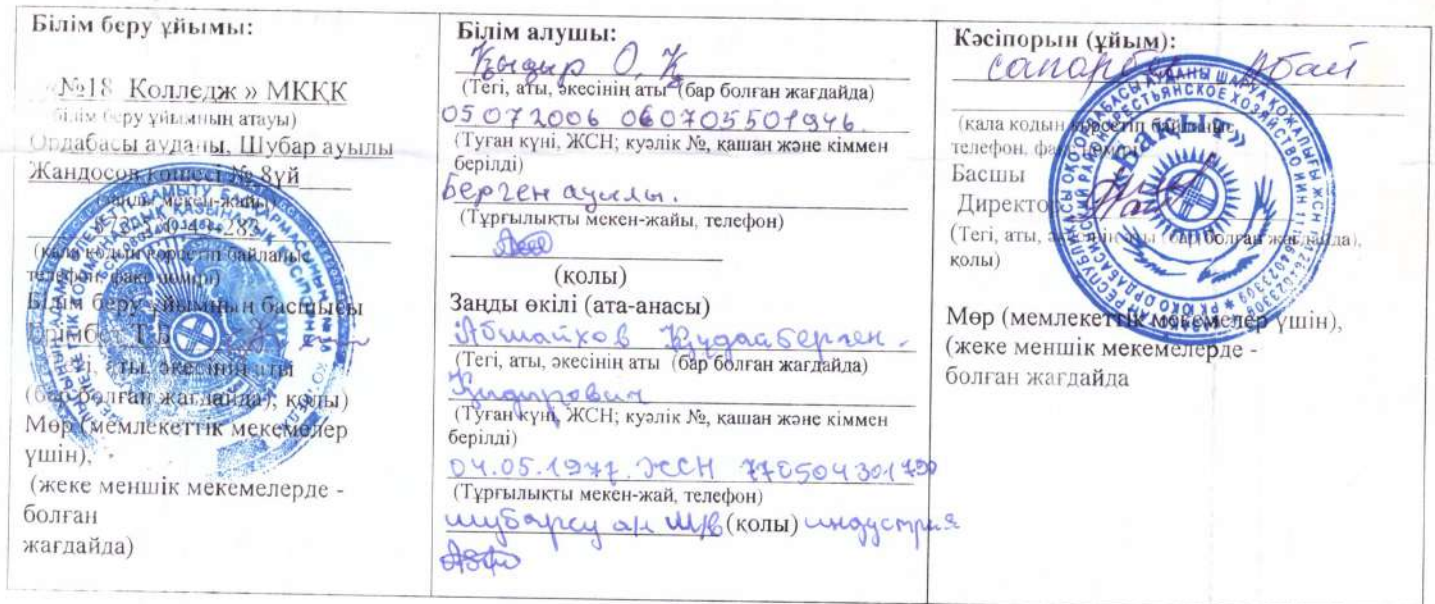 Білім беру ұйымы:
«№18 Колледж » МКҚК
(білім беру ұйымның атауы)
Ордабасы ауданы, Шубар ауылы
Жандосов көшесі № 8үй
(заңды мекен-жайы)
(қала кодын көрсетіп байланыс
телефон, факс нөмірі)
Білім беру ұйымның басшысы
Т.Б
аты, әкесінің аты
(бар болған жағдайда), қолы)
Мөр (мемлекеттік мекемелер
үшін),
(жеке меншік мекемелерде -
болған
жағдайда)
Білім алушы:
Қыдыр О. Қ
(Тегі, аты, әкесінің аты (бар болған жағдайда)
05 07 2006 060705501946.
(Туған күні, ЖСН; куәлік №, қашан және кіммен
берілді)
Берген ауылы.
(Тұрғылықты мекен-жайы, телефон)
(қолы)
Заңды өкілі (ата-анасы)
Құдайберген.
(Тегі, аты, әкесінің аты (бар болған жағдайда)
(Туған күні, ЖСН; куәлік №, қашан және кіммен
берілді)
04.05.1977. ЖСН 770504301790
(Тұрғылықты мекен-жай, телефон)
шубарсу (қолы) индустрия
Кәсіпорын (ұйым):
Абай
(қала кодын көрсетіп байланыс
телефон, факс нөмірі)
«Бақыт»
Басшы
Директор
(Тегі, аты, әкесінің аты (бар болған жағдайда),
қолы)
Мөр (мемлекеттік мекемелер үшін),
(жеке меншік мекемелерде -
болған жағдайда